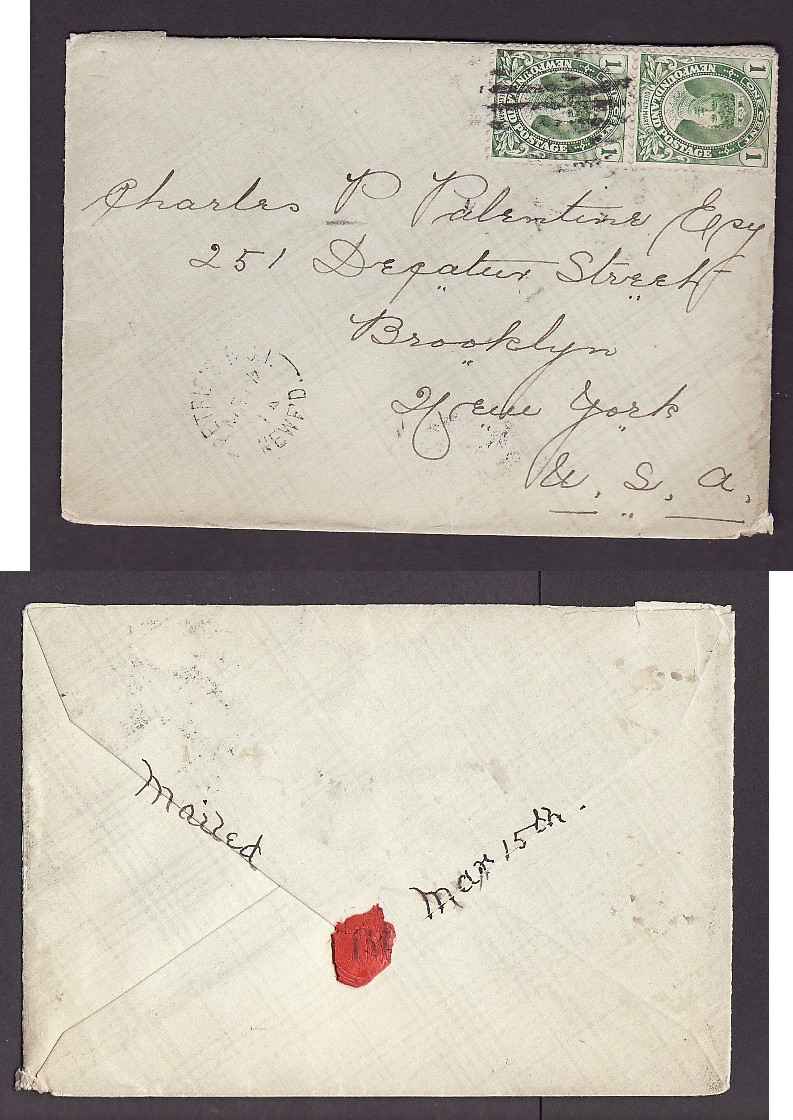 1 ONE CENT 1
NEWFOUNDLAND
POSTAGE
1 ONE CENT 1
NEWFOUNDLAND
POSTAGE
Charles P Palentine Esq
251 Decatur Street
Brooklyn
New York
U. S. A.
14
NEWF'D.
Mailed
Mar 15th.